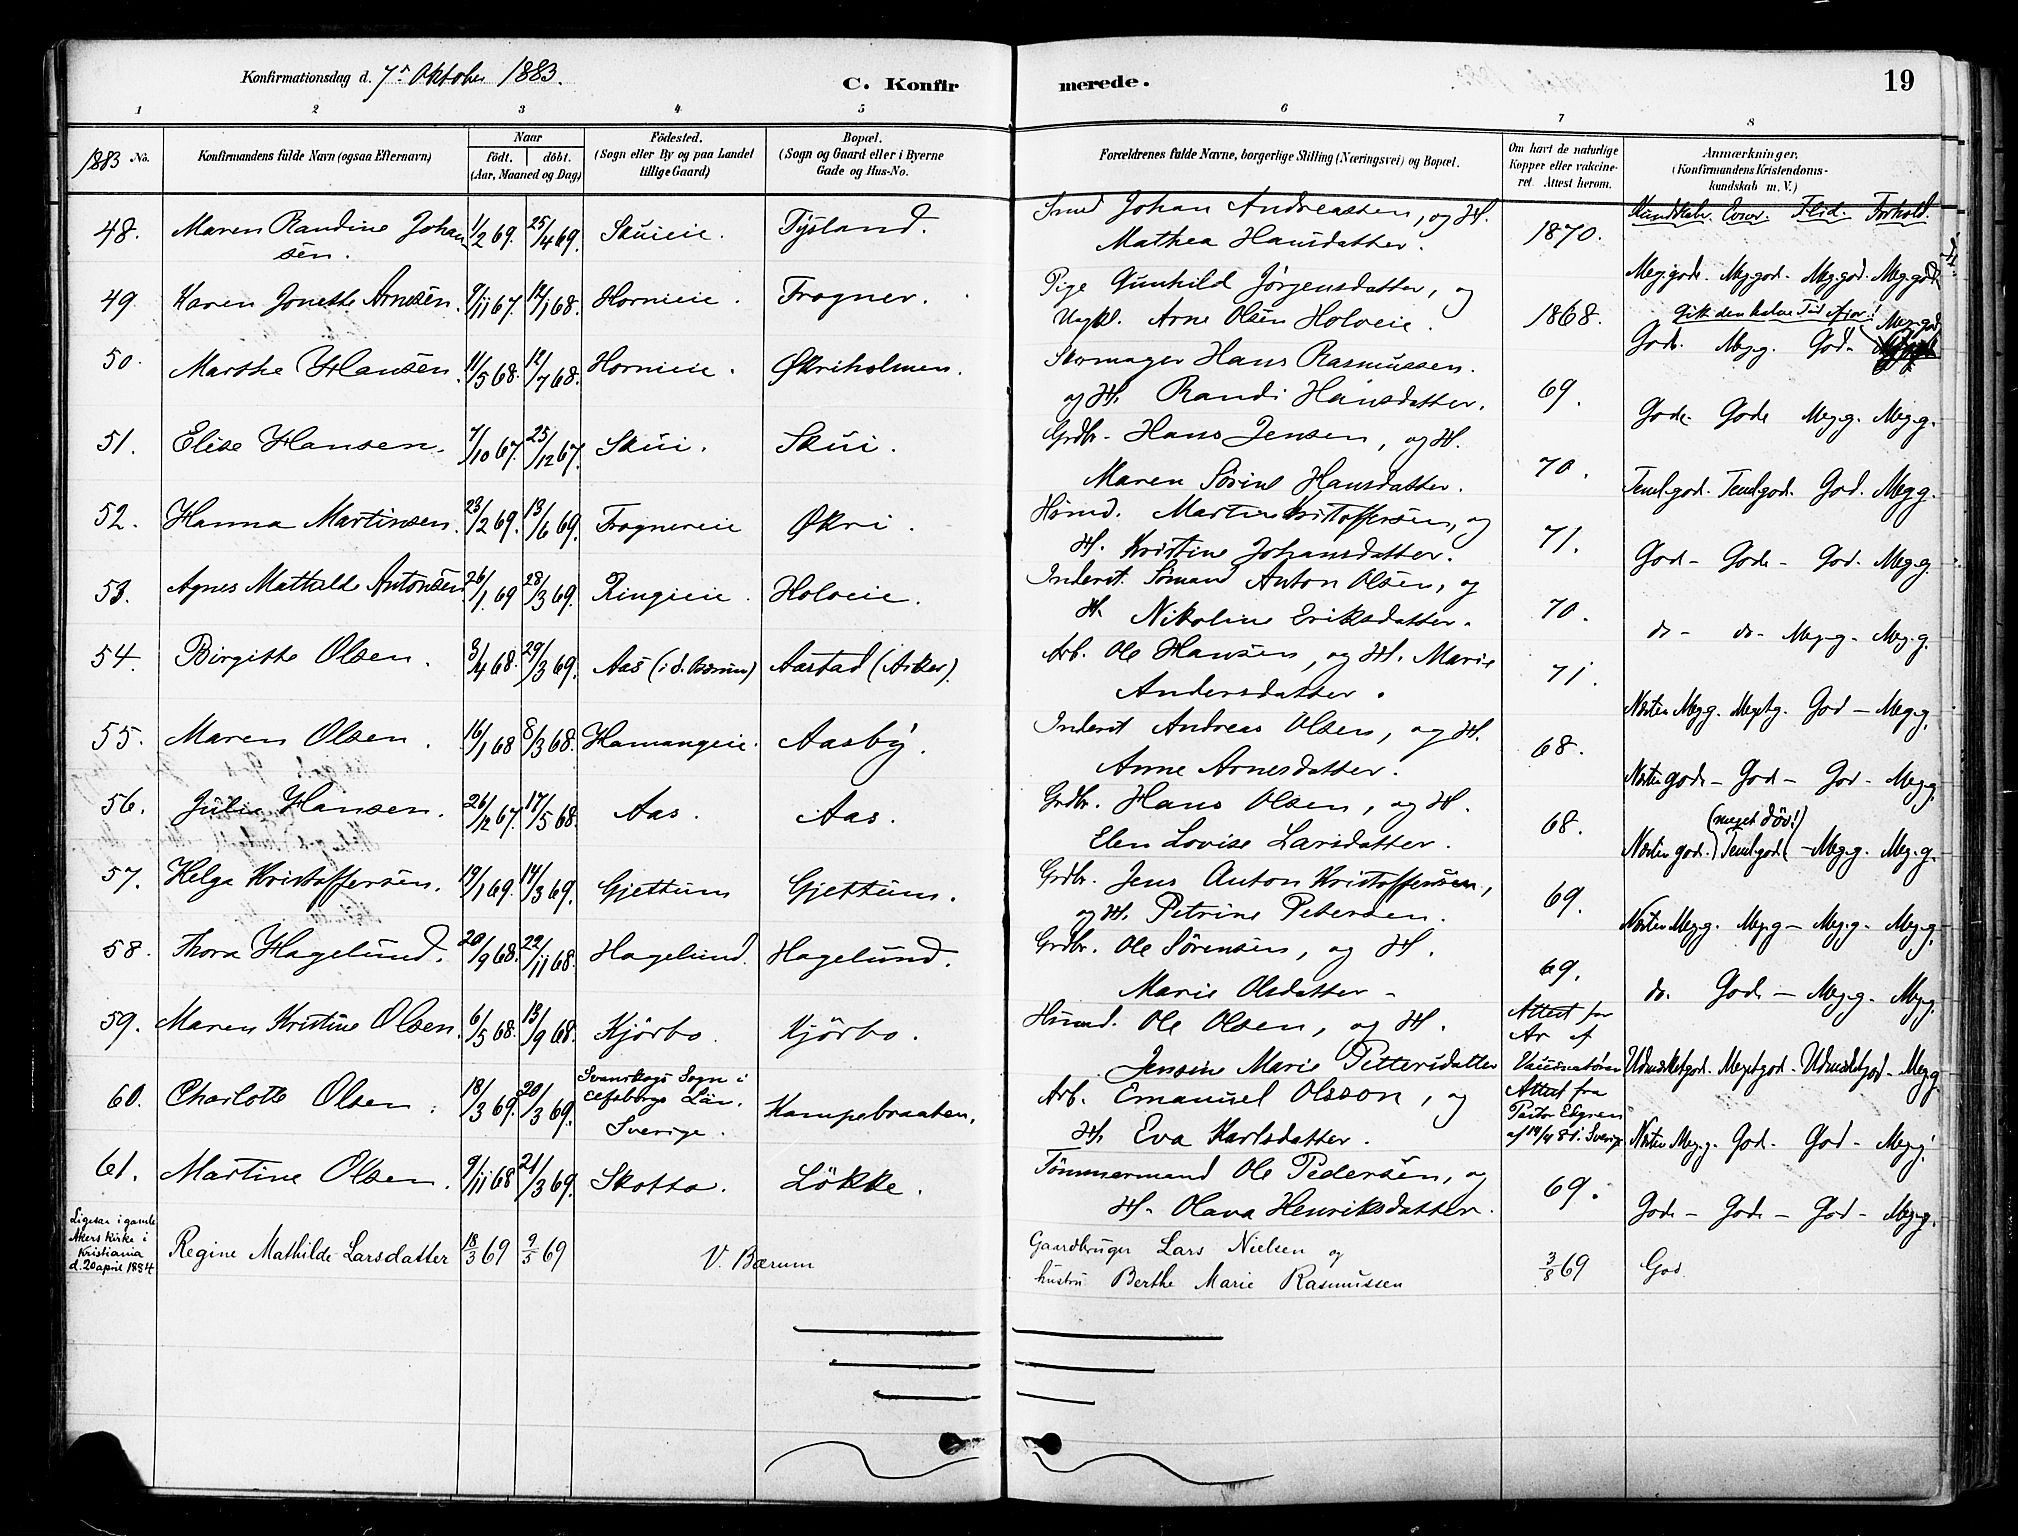 Konfirmationsdag d. 7de Oktober 1883.
C. Konfirmerede.
19
1 2 3 4 5 6 7 8
1883 No.
Konfirmandens fulde Navn (ogsaa Efternavn)
Naar
født. døbt.
(Aar, Maaned og Dag)
Födested.
(Sogn eller By og paa Landet
tillige Gaard)
Bopæl.
(Sogn og Gaard eller i Byerne
Gade og Hus-No.
Forældrenes fulde Navne, borgerlige Stilling (Næringsvei) og Bopæl.
Om havt de naturlige
Kopper eller vakcine-
ret. Attest herom.
Anmærkninger.
(Konfirmandens Kristendoms-
kundskab m. V.)
Kundskab. Evner. Flid. Forhold.
48. Maren Randine Johansen. 1/2 69. 25/4 69. Skuieie. Tysland. Smed Johan Andreassen, og H. Mathea Hansdatter. 1870. Meg. god. Meg. god. Meg. god. Meg. god.
49. Karen Jonette Arnesen. 9/11 67. 12/1 68. Hornieie. Frogner. Pige Gunhild Jørgensdatter, og Ungkl. Arne Olsen Holveie. 1868. Gik den halve Tid ifjor! God. Meg. g. God. Meg. god
50. Marthe Hansen. 11/5 68. 12/7 68. Hornieie. Økriholmen. Skomager Hans Rasmussen. og H. Randi Hansdatter. 69. God. God Meg. g. Meg. g.
51. Elise Hansen. 7/10 67. 25/12 67. Skui. Skui. Grdbr. Hans Jensen, og H. Maren Sørine Hansdatter. 70. Teml. god. Teml. god. God. Meg g.
52. Hanna Martinsen. 23/2 69. 13/6 69. Frognereie Økri. Husmd. Martin Kristoffersen, og H. Kristine Johansdatter. 71. God - God - God - Meg. g.
53. Agnes Mathilde Antonsen 26/1 69 28/3 69. Ringieie. Holveie. Inderst. Sömand Anton Olsen, og H. Nikoline Eriksdatter. 70. do - do - Meg. g - Meg. g.
54. Birgitte Olsen. 3/4 68. 29/3 69. Aas (i Ø. Bærum) Aastad (Asker). Arb. Ole Hansen, og H. Marie Andersdatter. 71. Næsten Meg. g. Meget g. God - Meg. g.
55. Maren Olsen. 16/1 68 8/3 68. Hamangeie. Aasby. Inderst Andreas Olsen, og H. Anne Arnesdatter. 68. Næsten god - God - God - Meg. g.
56. Julie Hansen. 26/12 67. 17/5 68. Aas. Aas. Grdbr. Hans Olsen, og H. Elen Lovise Larsdatter. 68. (meget döv!) Næsten god. Teml. god. - Meg. g. Meg. g.
57. Helga Kristoffersen. 19/1 69. 14/3 69. Gjettum Gjettum. Grdbr. Jens Anton Kristoffersen, og H. Petrine Petersen. 69. Næsten Meg. g. Meg. g - Meg. g. Meg. g.
58. Thora Hagelund. 20/9 68. 22/11 68. Hagelund. Hagelund. Grdbr. Ole Sørensen, og H. Marie Olsdatter - 69. do. God - Meg. g. Meg. g.
59. Maren Kristine Olsen. 6/5 68. 13/9 68. Kjörbo. Kjörbo. Husmd. Ole Olsen, og H. Jensine Marie Pettersdatter Attest for Ar af Vaccinatören Udmærket god. Meget god. Udmærket god - Meg. g.
60. Charlotte Olsen. 18/3 69. 20/3 69. Svanskogs Sogn i Elfsborgs Län. Sverige. Kampebraaten. Arb. Emanuel Olsson, og H. Eva Karlsdatter. Attest fra Pastor Elgren af 19/4 81. Sverige Næsten Meg. g. God. God - Meg. g.
61. Martine Olsen. 9/11 68 21/3 69. Skotta. Lökke. Tömmermand Ole Pedersen, og H. Olava Henriksdatter. 69. God - God - God - Meg. g.
Ligesaa i gamle
Akers Kirke i
Kristiania
d. 20 april 1884
Regine Mathilde Larsdatter 18/3 69 9/5 69 V. Bærum Gaardbruger Lars Nielsen og hustru Berthe Marie Rasmussen 3/8 69 God